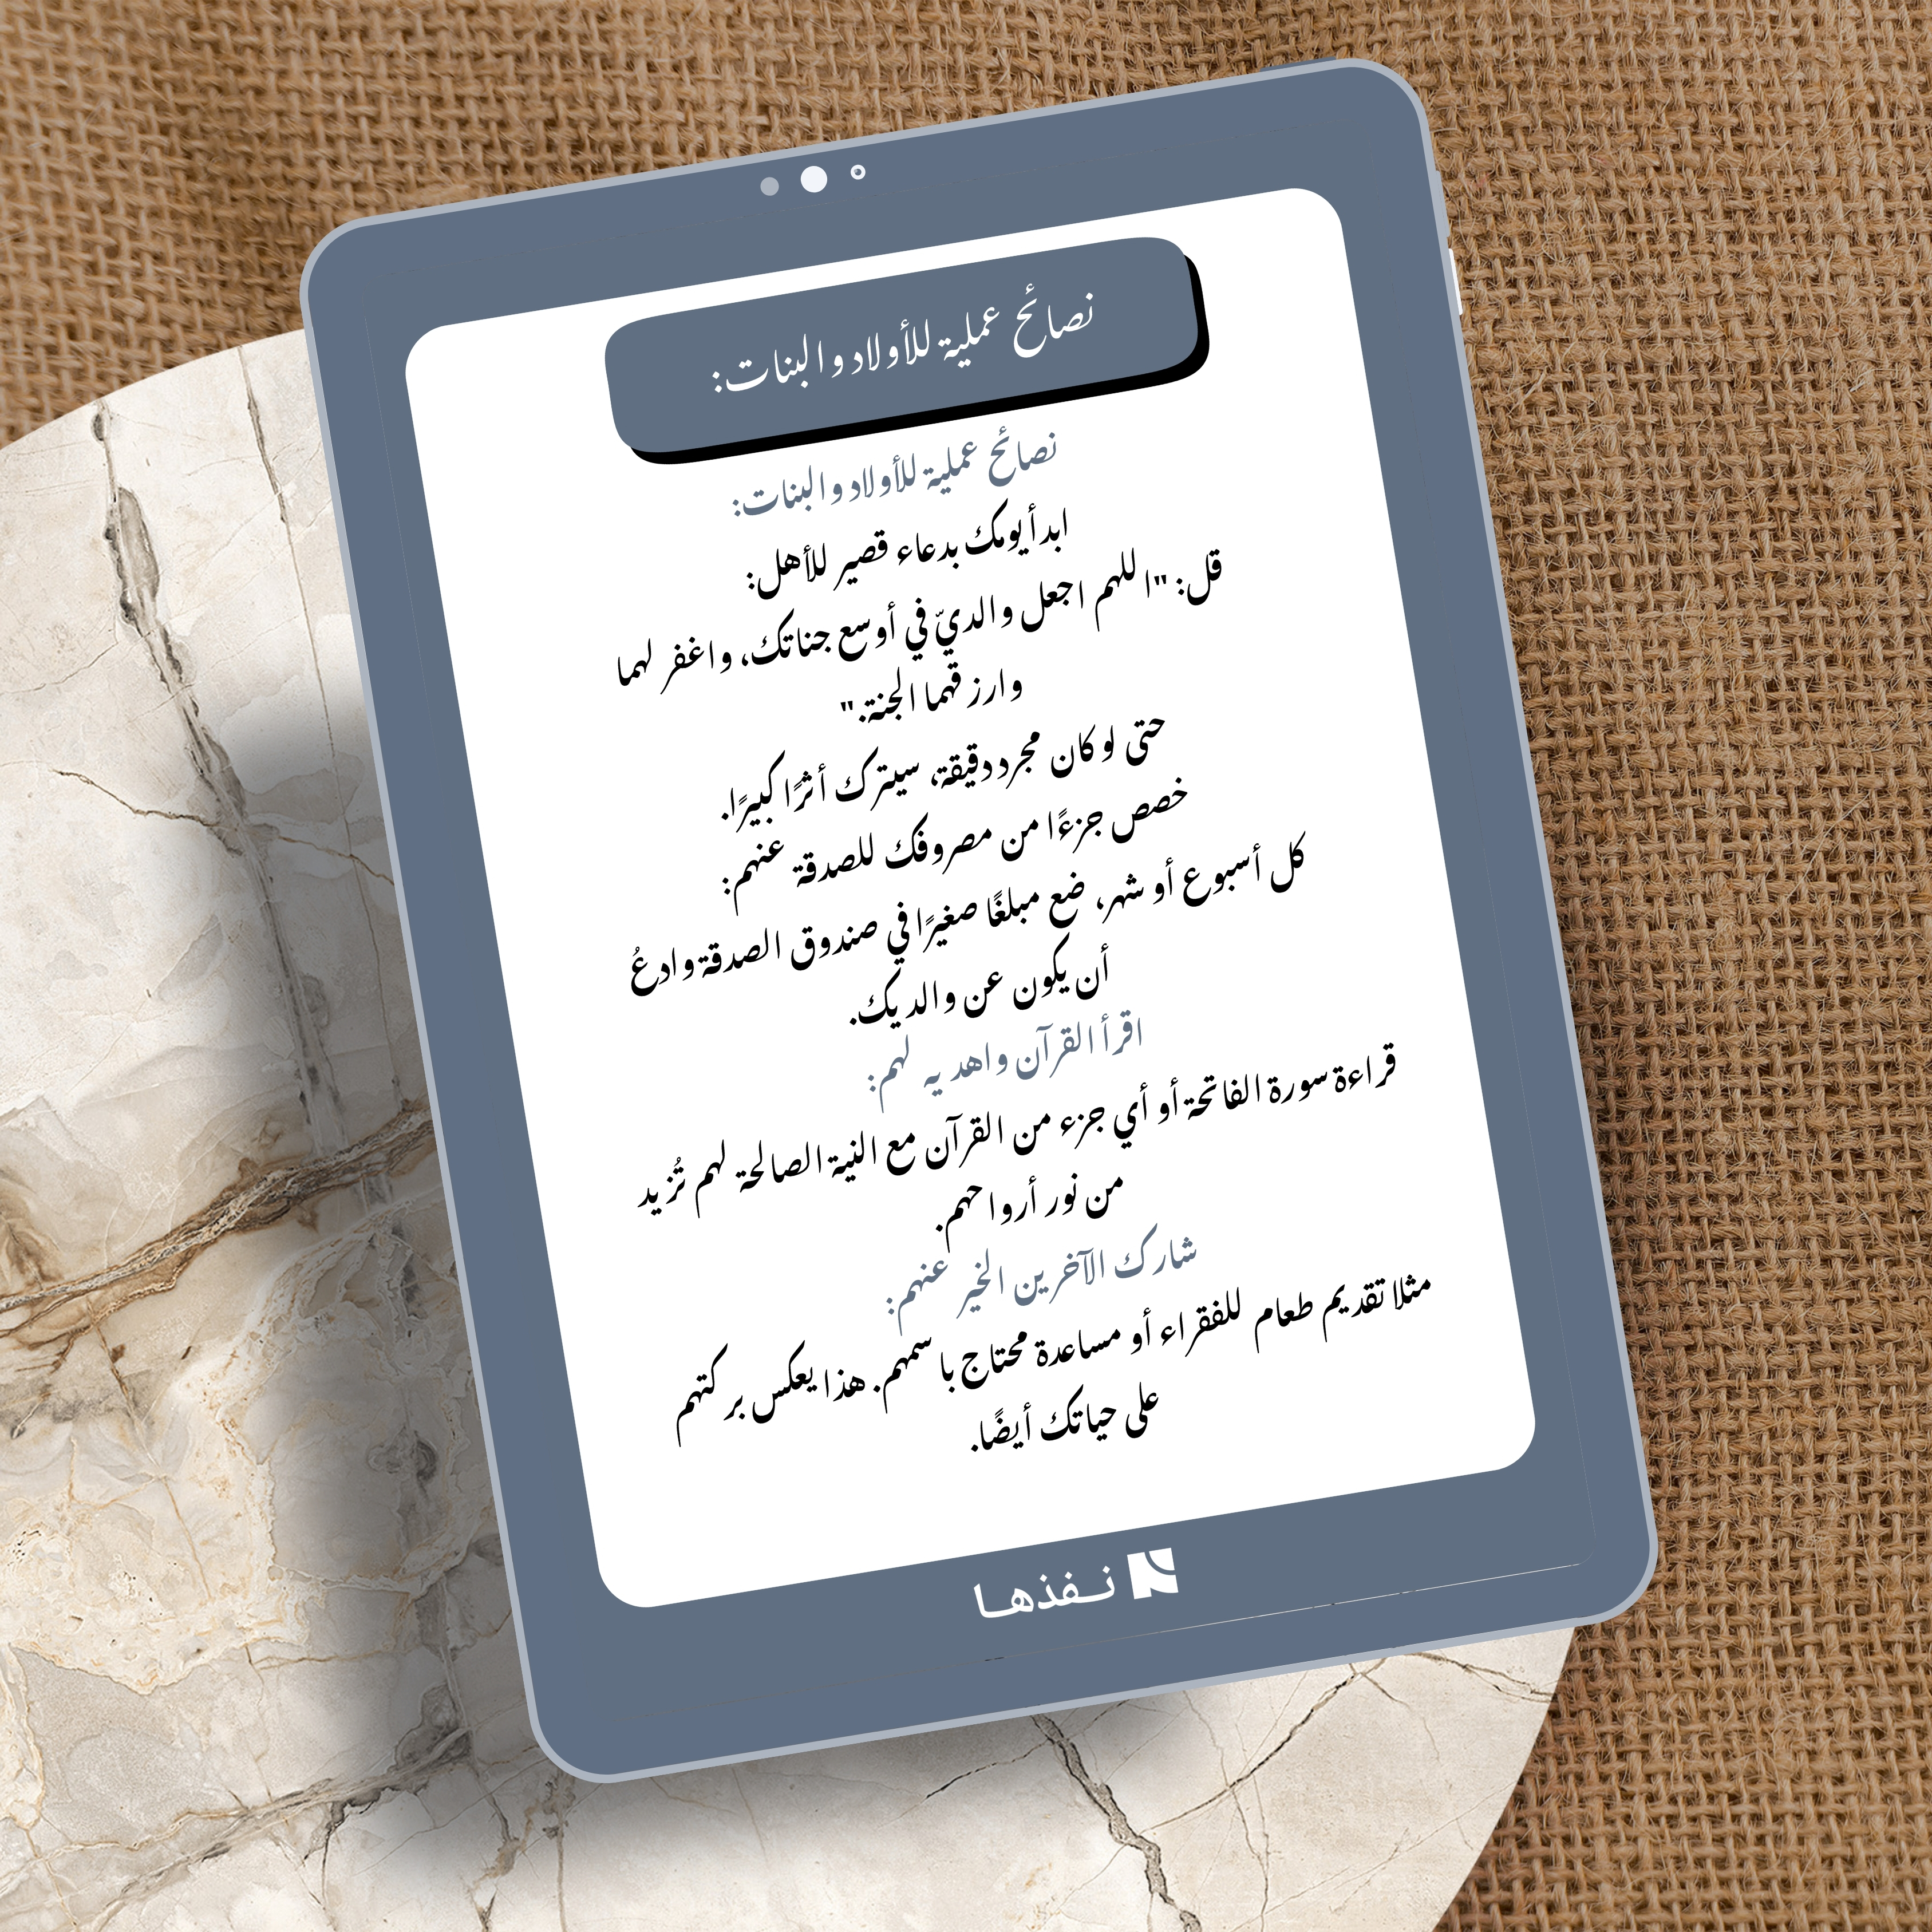 نصائح عملية للأولاد والبنات:
نصائح عملية للأولاد والبنات:
ابدأ يومك بدعاء قصير للأهل:
قل: "اللهم اجعل والديّ في أوسع جناتك، واغفر لهما
وارزقهما الجنة."
حتى لو كان مجرد دقيقة، سيترك أثرًا كبيرًا.
خصص جزءًا من مصروفك للصدقة عنهم:
كل أسبوع أو شهر، ضع مبلغًا صغيرًا في صندوق الصدقة وادعُ
أن يكون عن والديك.
اقرأ القرآن واهديه لهم:
قراءة سورة الفاتحة أو أي جزء من القرآن مع النية الصالحة لهم تُزيد
من نور أرواحهم.
شارك الآخرين الخير عنهم:
مثلا تقديم طعام للفقراء أو مساعدة محتاج باسمهم. هذا يعكس بركتهم
على حياتك أيضًا.
نـفذهـا